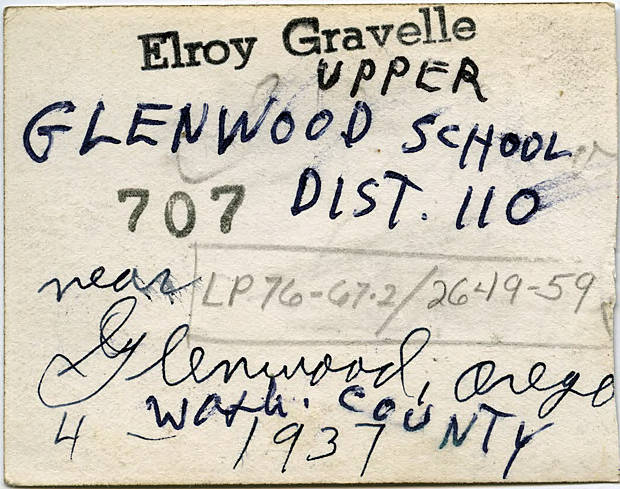 Elroy Gravelle
UPPER
GLENWOOD SCHOOL
707 DIST. 110
near
LP 76-67.2/2649-59
Glenwood, Orego
Wash. COUNTY
4 - 1937